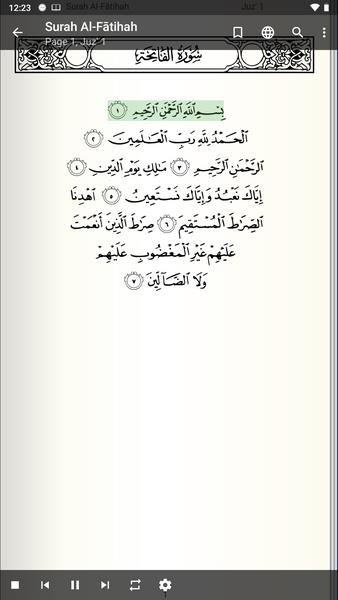 12:23 Surah Al-Fātihah Juz' 1
Surah Al-Fātihah
Page 1, Juz' 1
سُورَةُ الفَاتِحَةِ
بِسْمِ ٱللَّهِ ٱلرَّحْمَٰنِ ٱلرَّحِيمِ ١
ٱلْحَمْدُ لِلَّهِ رَبِّ ٱلْعَٰلَمِينَ ٢
ٱلرَّحْمَٰنِ ٱلرَّحِيمِ ٣ مَٰلِكِ يَوْمِ ٱلدِّينِ ٤
إِيَّاكَ نَعْبُدُ وَإِيَّاكَ نَسْتَعِينُ ٥ ٱهْدِنَا
ٱلصِّرَٰطَ ٱلْمُسْتَقِيمَ ٦ صِرَٰطَ ٱلَّذِينَ أَنْعَمْتَ
عَلَيْهِمْ غَيْرِ ٱلْمَغْضُوبِ عَلَيْهِمْ
وَلَا ٱلضَّآلِّينَ ٧